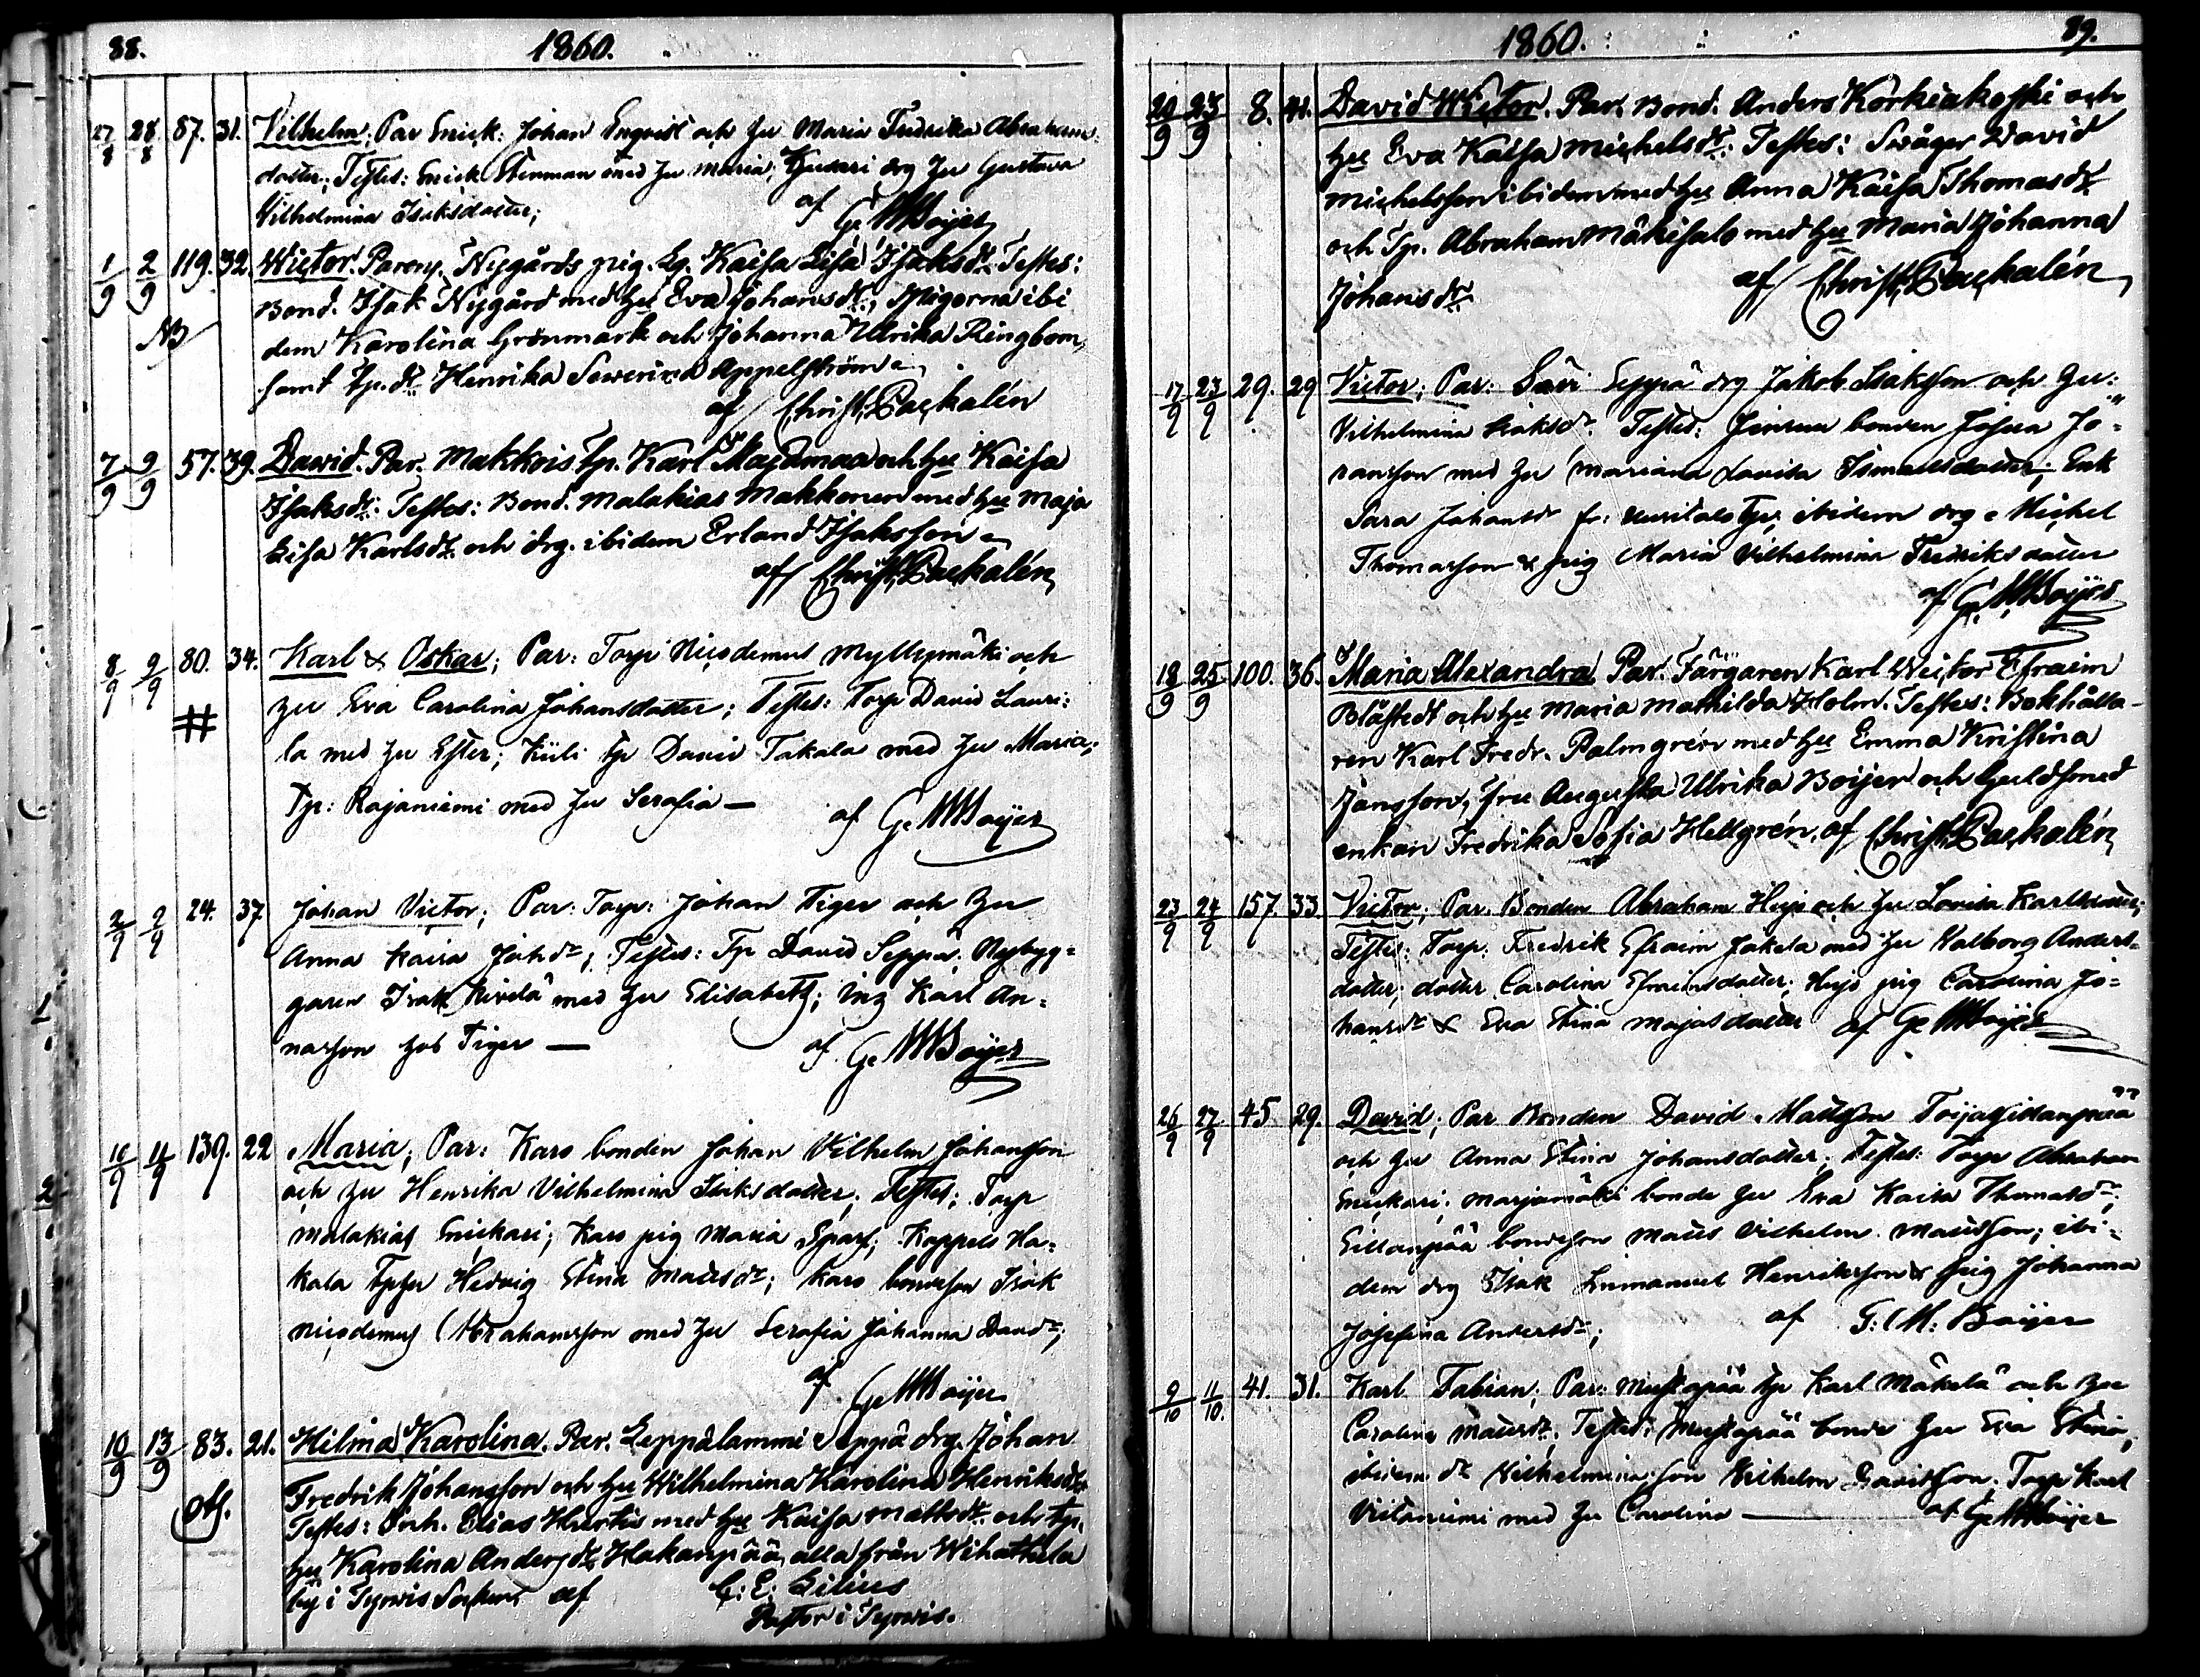 88. 1860.
27/8 28/8 87. 31. Vilhelm; Par Enick: Johan Enqvist och hu Maria Fredrika Abrahams-
dotter; Testes: Enick Stenman med hu Maria; drg hu Gustava
Vilhelmina Isaksdotter;
af G. M Boijer
1/9 2/9 119. 32. Wictor. Parens. Nygårds pig. Lg. Kaisa Lisa Isaksdr. Testes:
Bond. Isak Nygård med hu Eva Johansdr, Pigorna ibi
NB dem Karolina Grönmark och Johanna Ulrika Ringbom,
samt Tp.dr Henrika Sewerina Appelström
af Christ. Packalén
7/9 9/9 57. 39. David. Par. Makkois Tp. Karl och hu Kaisa
Isaksdr. Testes: Bond. Malakias Makkonen med hu Maja
Lisa Karlsdr och drg. ibidem Erland Isaksson
af Christ. Packalén
8/9 9/9 80. 34. Karl & Oskar; Par: Torp Nicodemus Myllymäki och
# hu Eva Carolina Johansdotter; Testes: Torp David Lauri-
la med hu Ester; Kiili tp David Takala med hu Maria;
Tp: Rajaniemi med hu Serafia —
af G. M Boijer
2/9 9/9 24. 37 Johan Victor; Par: Torp: Johan Tiger och hu
Anna Kaisa Johdr; Testes: Tp David Seppä; Nybyg-
garen Isak Kivelä med hu Elisabeth; Karl An-
narson Tiger —
af G. M Boijer
10/9 11/9 139. 22 Maria; Par: Karo bonden Johan Vilhelm Johansson
och hu Henrika Vilhelmina Isaksdotter; Testes; Torp
Malakias Enickari; Karo pig Maria Sparf; Koppelo Ha-
kala Tphu Hedvig Stina Matsdr; Karo bondeson Isak
Nicodemus Abrahamsson med hu Serafia Johanna Davdr;
af G. M Boijer
10/9 13/9 83. 21. Hilma Karolina. Par. Leppälammi Seppä drg. Johan
Fredrik Johansson och hu Wilhelmina Karolina Henriksdr
Testes: Inh. Elias Hurtis med hu Kaisa Mattsdr och tp.
hu Karolina Andersdr Hakanpää, alla från Wihattula
by i Tyrvis Socken af C: E: Lilius
Pastor i Tyrvis.
1860. 89.
20/9 23/9 8. 41. David Wictor. Par. Bond. Anders Korkiakoski och
hu Eva Kaisa Michelsdr. Testes: Svåger David
Michelsson ibidem med hu Anna Kaisa Thomasdr
och Tp. Abraham Mäkisalo med hu Maria Johanna
Johansdr af Christ. Packalén
17/9 23/9 29. 29 Victor; Par: Sävi Seppä drg Jakob Isaksson och hu:
Vilhelmina Isaksdr. Testes: bonden Josua Jo-
hansson med hu Mariana Lovisa Ismaelsdotter; Enk
Sara Johansdr ibidem drg Michel
Thomasson & pig Maria Vilhelmina Fredriksdotter
af G. M Boijer
18/9 25/9 100. 36. Maria Alexandra Par. Färgaren Karl Wictor Efraim
Blåfeldt och hu Maria Mathilda Holm. Testes: Bokhålla-
ren Karl Fredr. Palmgrén med hu Emma Kristina
Jansson, fru Augusta Ulrika Boijer och Guldsmed
enkan Fredrika Sofia Hellgrén, af Christ. Packalén
23/9 24/9 157. 33. Victor; Par Bonden Abraham Heijo och hu Lovisa Karlsdotter;
Testes: Torp. Fredrik Efraim Jokela med hu Valborg Anders-
dotter; dotter Carolina Efraimsdotter; Heijo pig Carolina Jo-
hansdr & Eva Stina Majasdotter af G M Boijer
26/9 27/9 45. 29. David; Par Bonden David Mattsson Toijasillanpää
och hu Anna Stina Johansdotter; Testes: Torp Abraham
Enickari; Marjamäki bonde hu Eva Kaisa Thomasdr;
Sillanpää bondeson Matts Vilhelm Mattsson; ibi-
dem drg Isak Emmanuel Henriksson & pig Johanna
Josefina Andersdr; af G: M: Boijer
9/10 11/10. 41. 31. Karl Fabian; Par: Mustapää tp Karl Mäkelä och hu
Carolina Mattsdr; Testes: Mustapää bonde hu Eva Stina,
ibidem dr Vilhelmina, son Wilhelm Davidsson; Torp Karl
Viitaniemi med hu Carolina — af G M Boijer